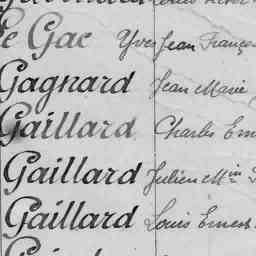 Le Gac Yves Jean Françoi
Gagnard Jean Marie
Gaillard Charles Ern
Gaillard Julien Min
Gaillard Louis Ernest